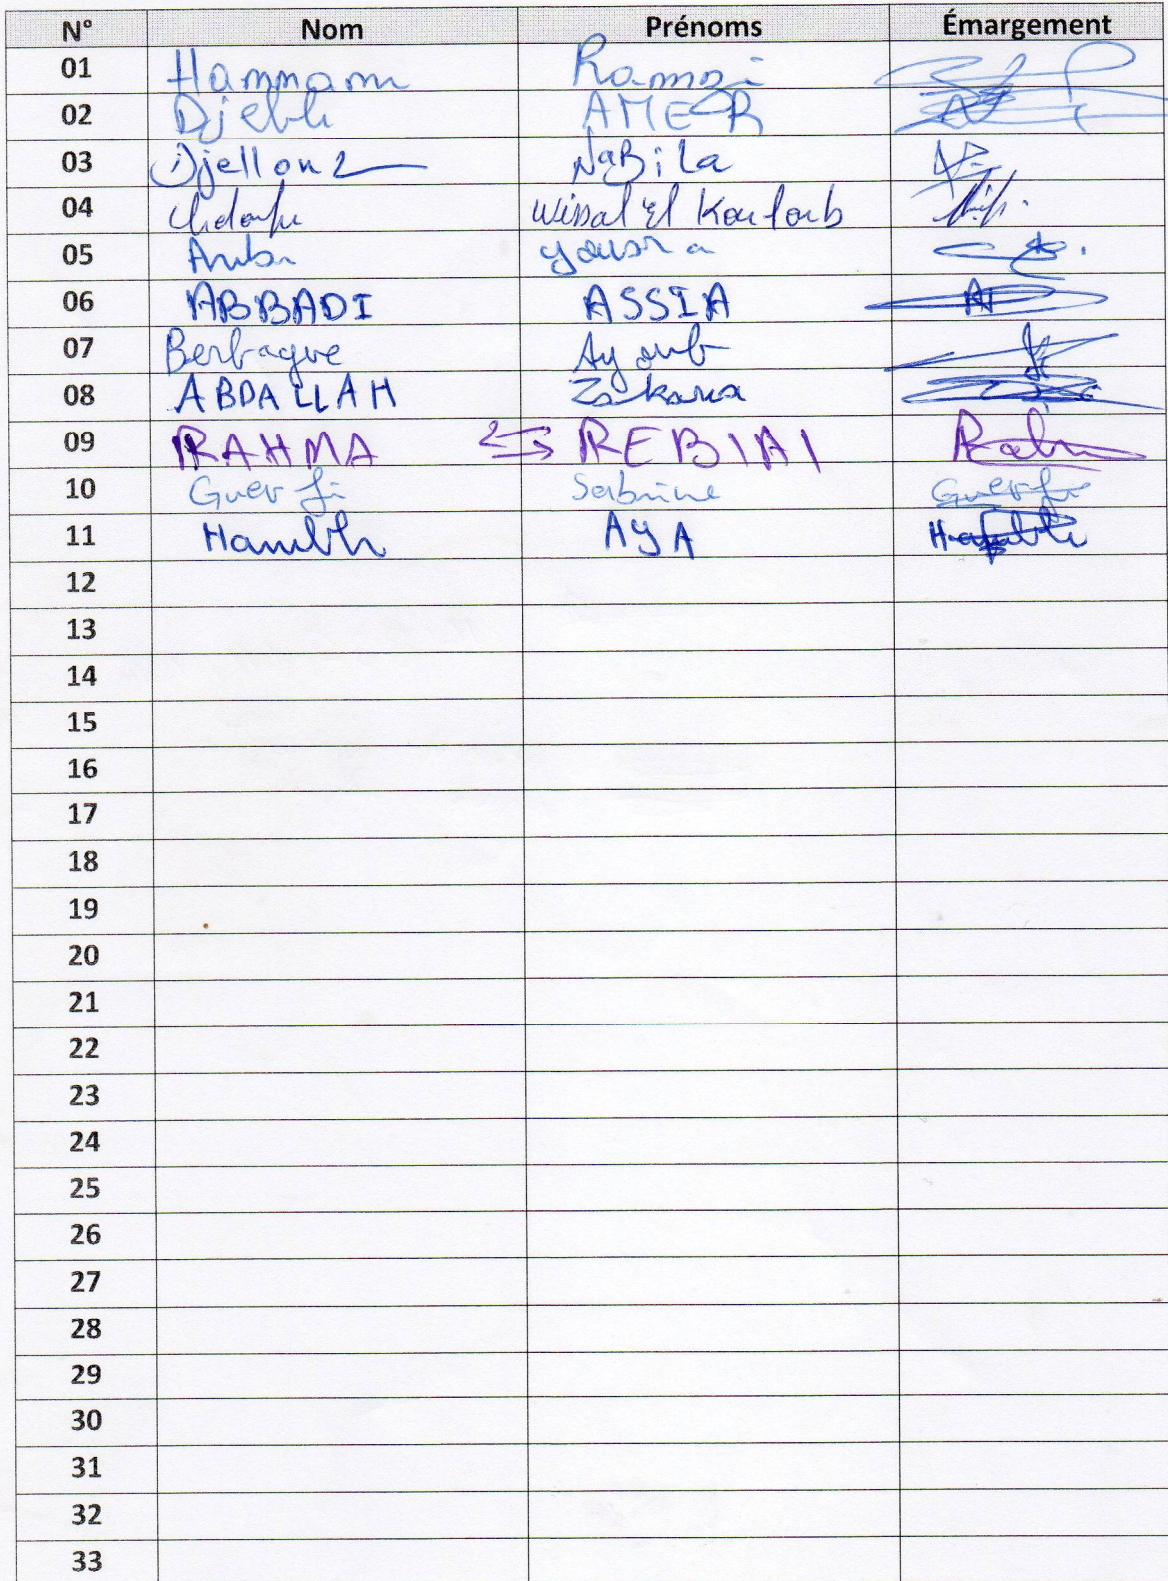 N° Nom Prénoms Émargement
01 Hammami Ramzi
02 Djebli AMER
03 Djellouz NaBila
04 Wissal El Kouloub
05 yousra
06 ABBADI ASSIA
07 Berbague Ayoub
08 ABDALLAH Zakaria
09 RAHMA REBIAI
10 Guerfi Sabrine Guerfi
11 Hambli AYA Hambli
12
13
14
15
16
17
18
19
20
21
22
23
24
25
26
27
28
29
30
31
32
33